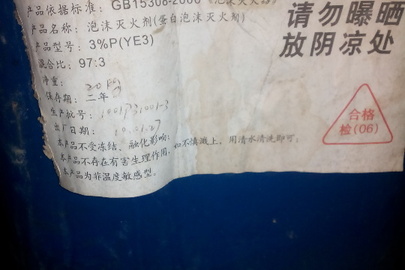 产品依据标准：GB15308-2006《泡沫灭火
产品名称：泡沫灭火剂(蛋白泡沫灭火剂)
产品型号：3%P(YE3)
混合比：97:3
净重：
保存期：二年
生产批号：
出厂日期：
本产品不受冻结、融化影响。
本产品不存在有害生理作用，如不慎溅上，用清水清洗即可。
本产品为非温度敏感型。
请勿曝晒
放阴凉处
合格
检(06)